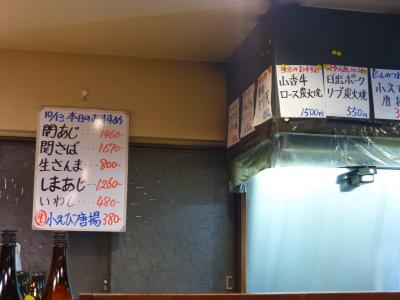 10/13 本日のおすすめ
関あじ……1460-
関さば……1670-
生さんま…800-
しまあじ…1260-
いわし……480-
生 小えび唐揚 380-
山香牛
ロース炭火焼
1500円
日出ポーク
リブ炭火焼
550円
小えび
唐揚